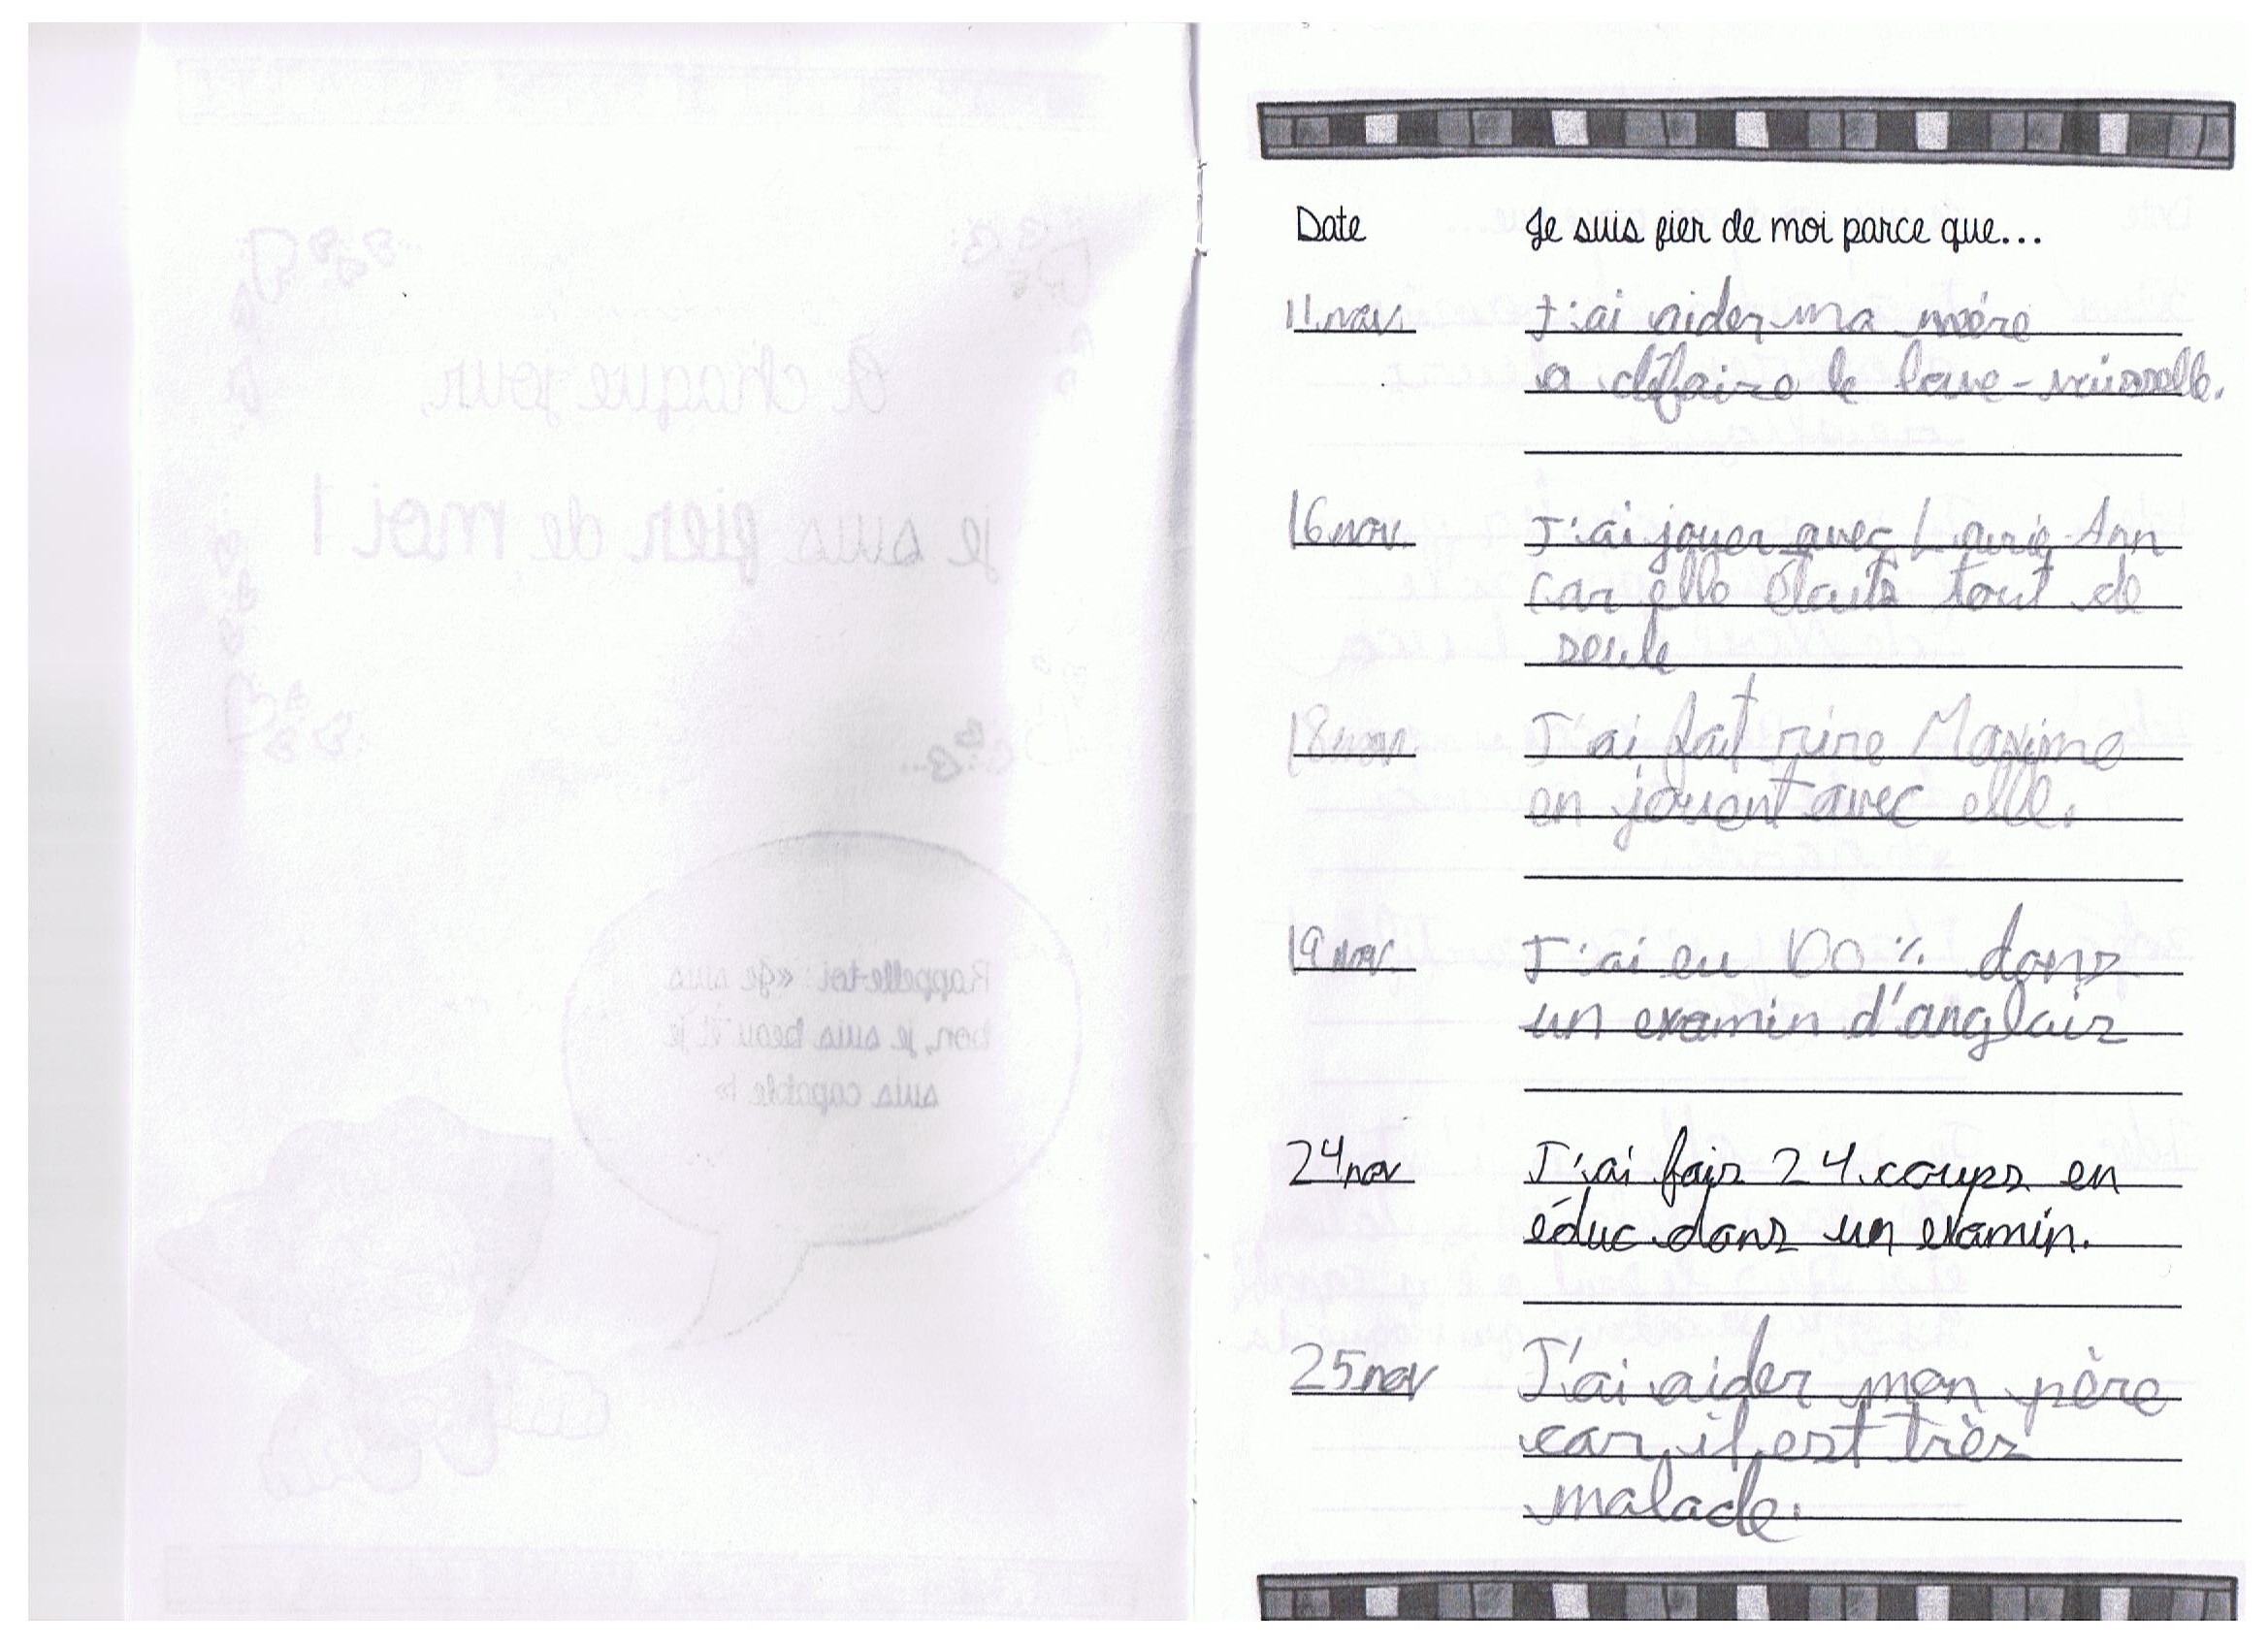 Date Je suis fier de moi parce que...
11 nov. J'ai aider ma mère
a défaire le lave-vaisselle.
16 nov. J'ai jouer avec Laurie-Ann
car elle étaits tout de
seule
18 nov J'ai fait rire Maxime
en jouent avec elle.
19 nov. J'ai eu 100% dans
un examin d'anglais
24 nov J'ai fais 24 coups en
éduc dans un examin.
25 nov J'ai aider mon père
car il est très
malade.
À chaque jour,
je suis fier de moi !
Rappelle-toi : « Je suis
bon, je suis beau et je
suis capable !»